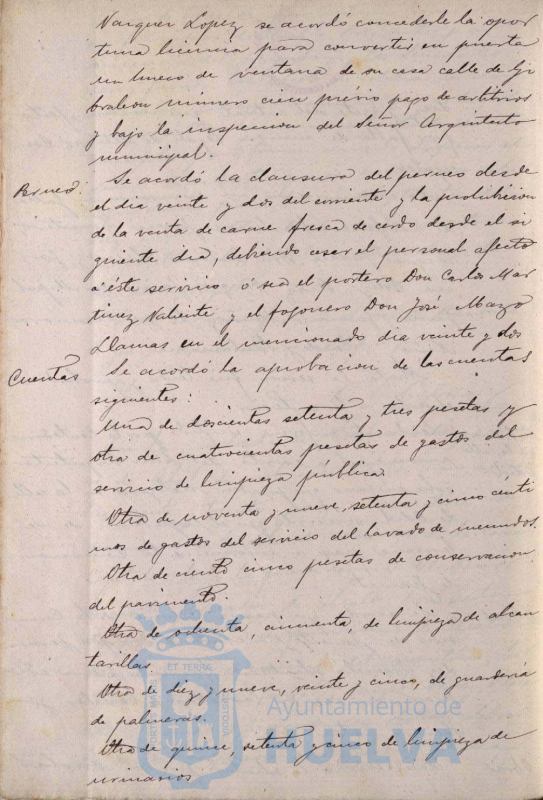 Vazquez Lopez se acordó concederle la opor
tuna licencia para convertir en puerta
un hueco de ventana de su casa calle de Gi
braleon número cien prévio pago de arbitrios
y bajo la inspeccion del Señor Arquitecto
municipal.
Se acordó la clausura del perneo desde
el dia veinte y dos del corriente y la prohibicion
de la venta de carne fresca de cerdo desde el si
guiente dia, debiendo cesar el personal afecto
a éste servicio ó sea el portero Don Carlos Mar
tinez Valiente y el fogonero Don José Mazo
Llamas en el mencionado dia veinte y dos
Cuentas
Se acordó la aprobacion de las cuentas
siguientes:
Una de doscientas setenta y tres pesetas y
otra de cuatrocientas pesetas de gastos del
servicio de limpieza pública.
Otra de noventa y nueve, setenta y cinco cénti
mos de gastos del servicio del lavado de menudos.
Otra de ciento cinco pesetas de conservacion
del pavimento.
Otra de ochenta, cincuenta, de limpieza de alcan
tarillas
Otra de diez y nueve, veinte y cinco, de guardería
de palmeras.
Otra de quince, setenta y cinco de limpieza de
urinarios
ET TERRA
PORTUS MARIS
CUSTODIA
Ayuntamiento de
HUELVA